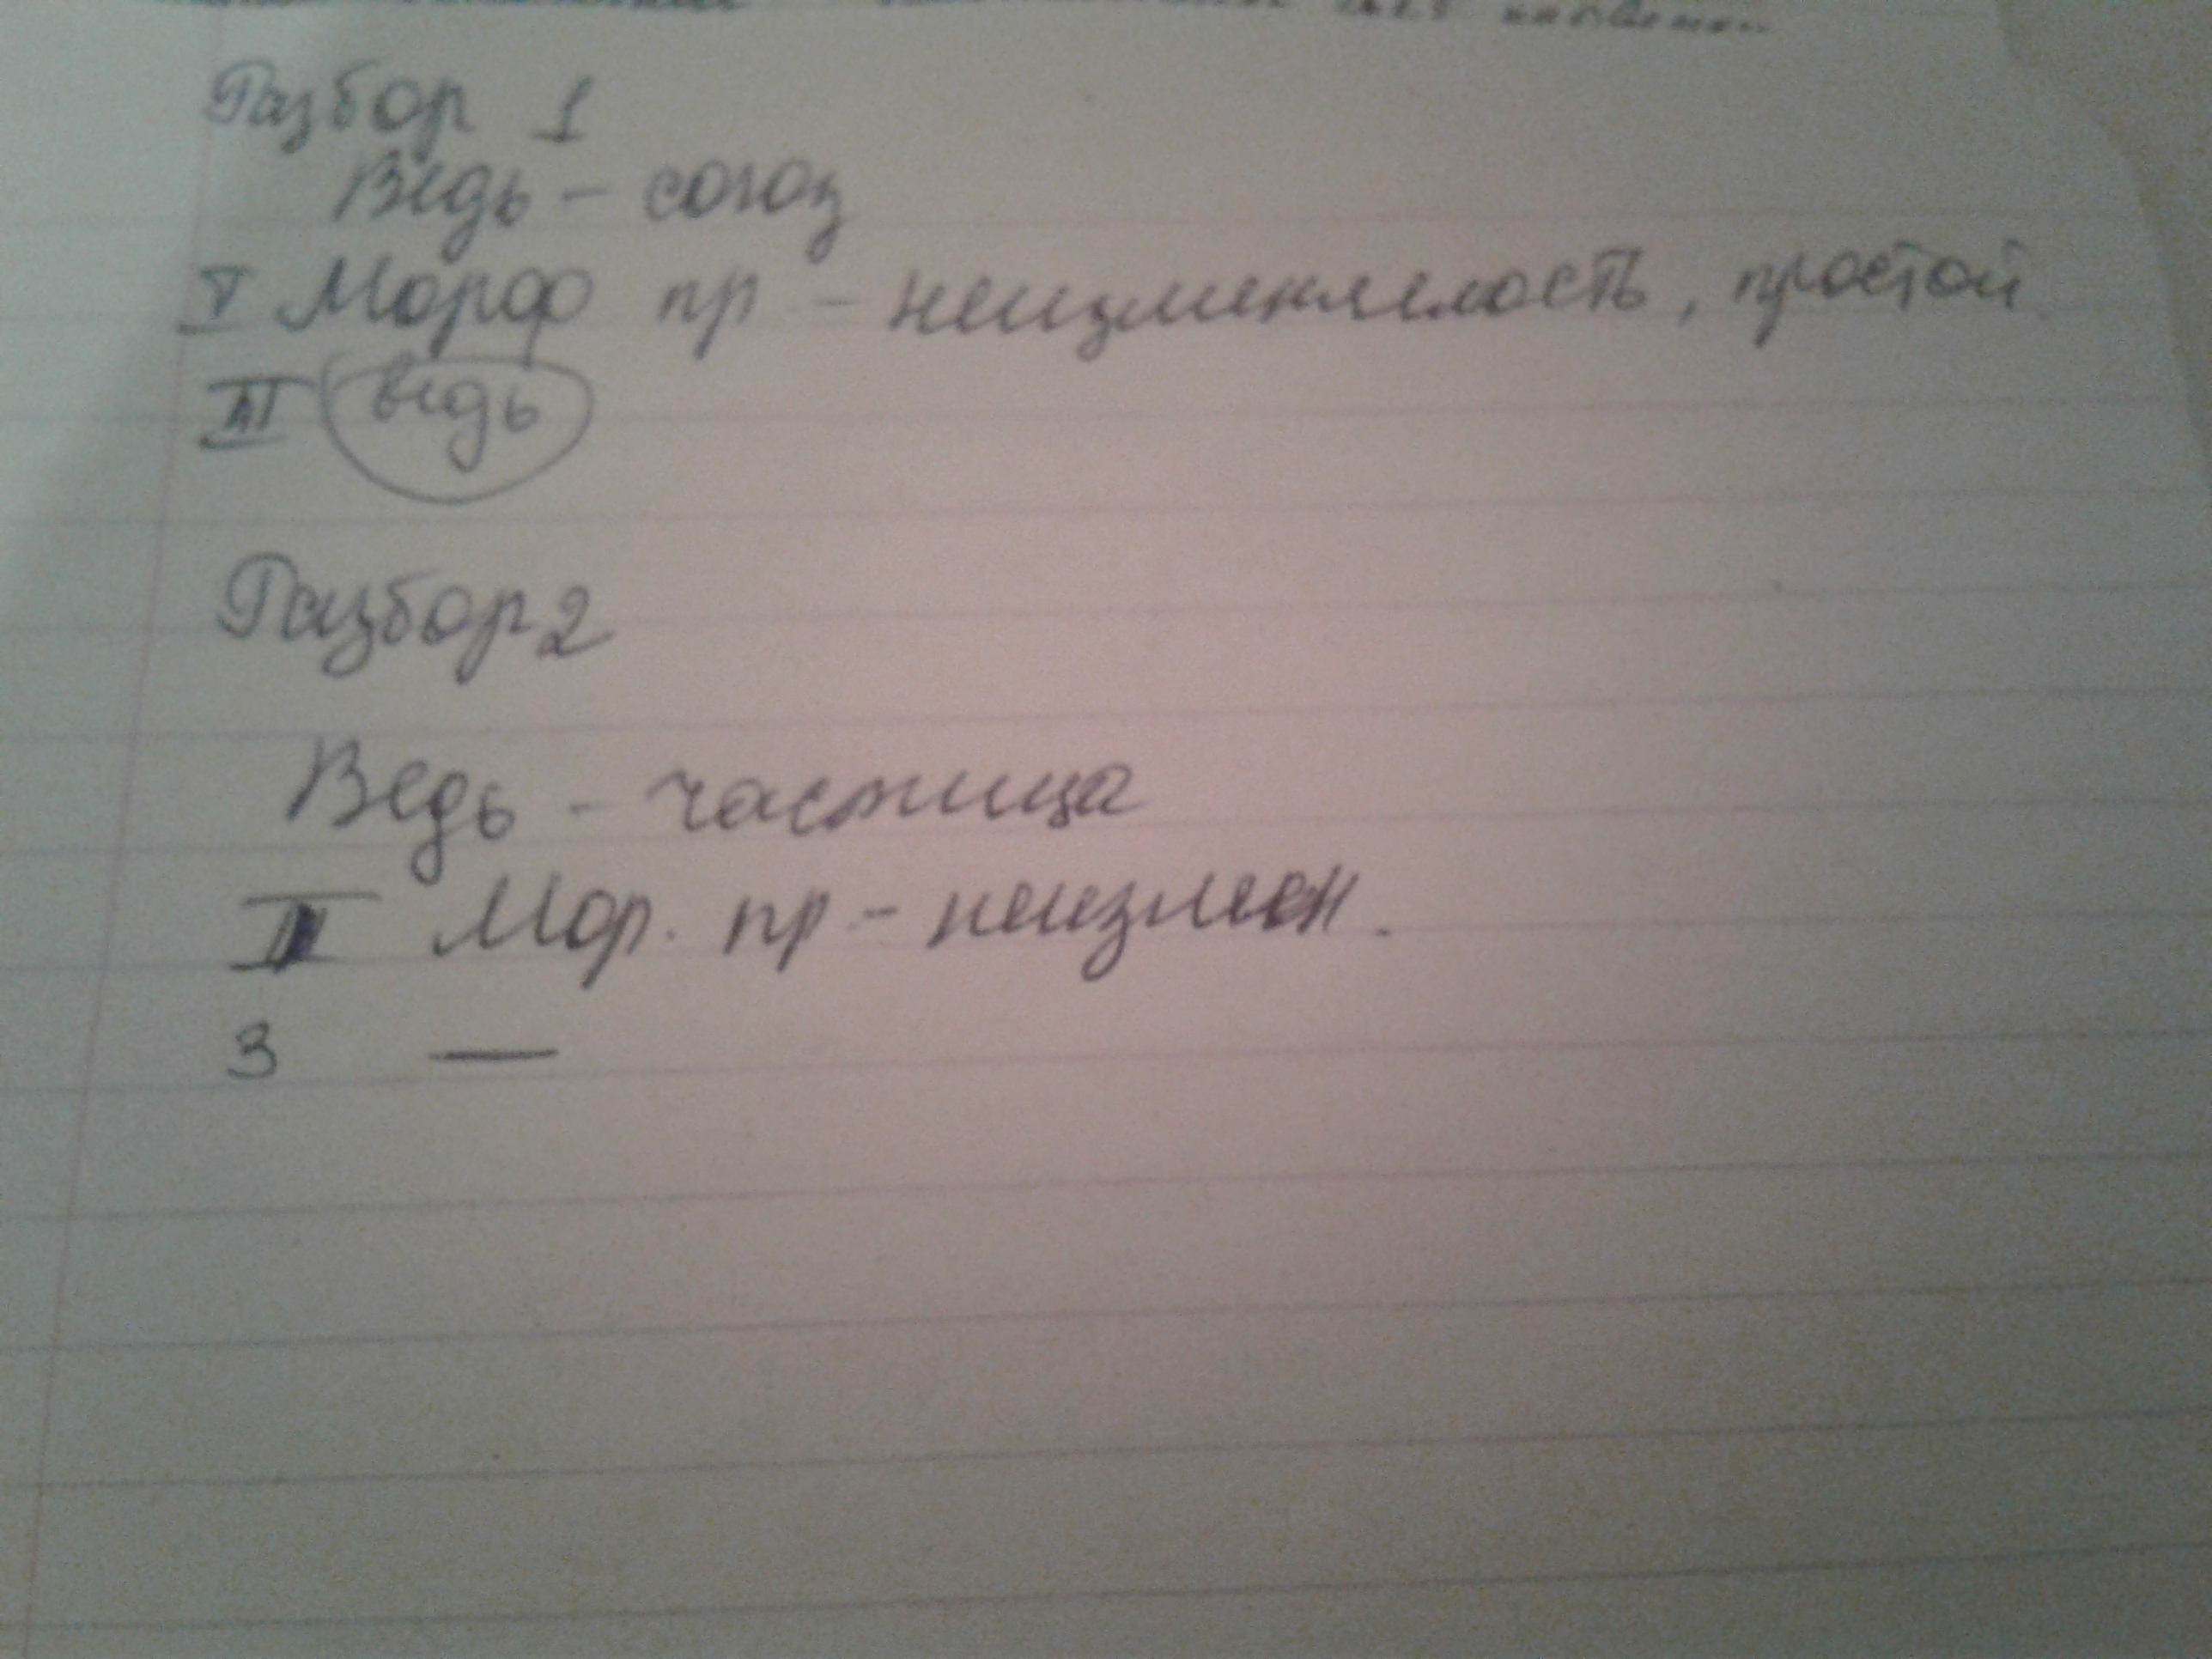 Разбор 1
Ведь - союз
Морф пр - неизменяемость, простой
III ведь
Разбор 2
Ведь - частица
II Мор. пр - неизмен.
3 —